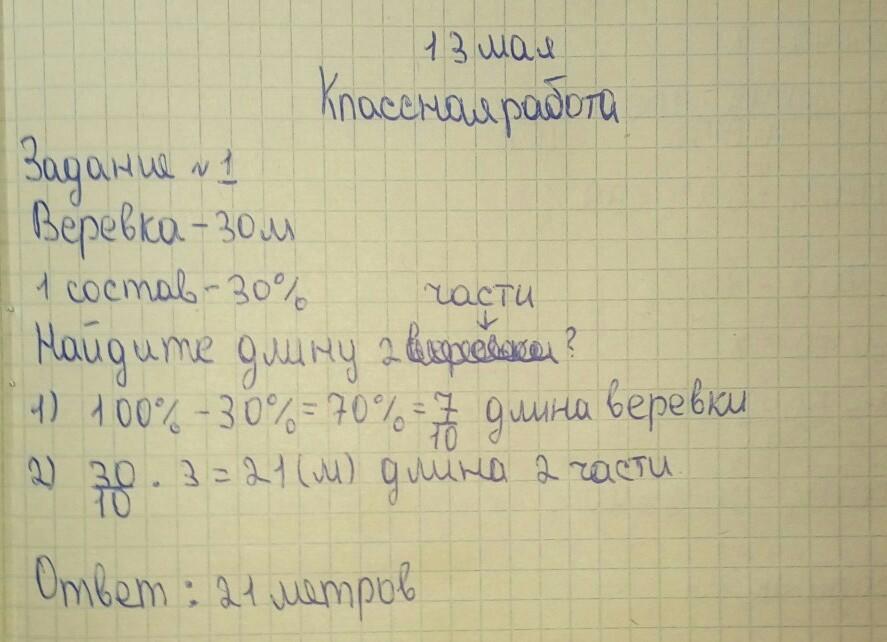 13 мая
Классная работа
Задание №1
Веревка - 30м
1 состав - 30%
части
Найдите длину 2 ?
1) 100% - 30% = 70% = 7/10 длина веревки
2) 30/10 . 3 = 21 (м) длина 2 части
Ответ : 21 метров